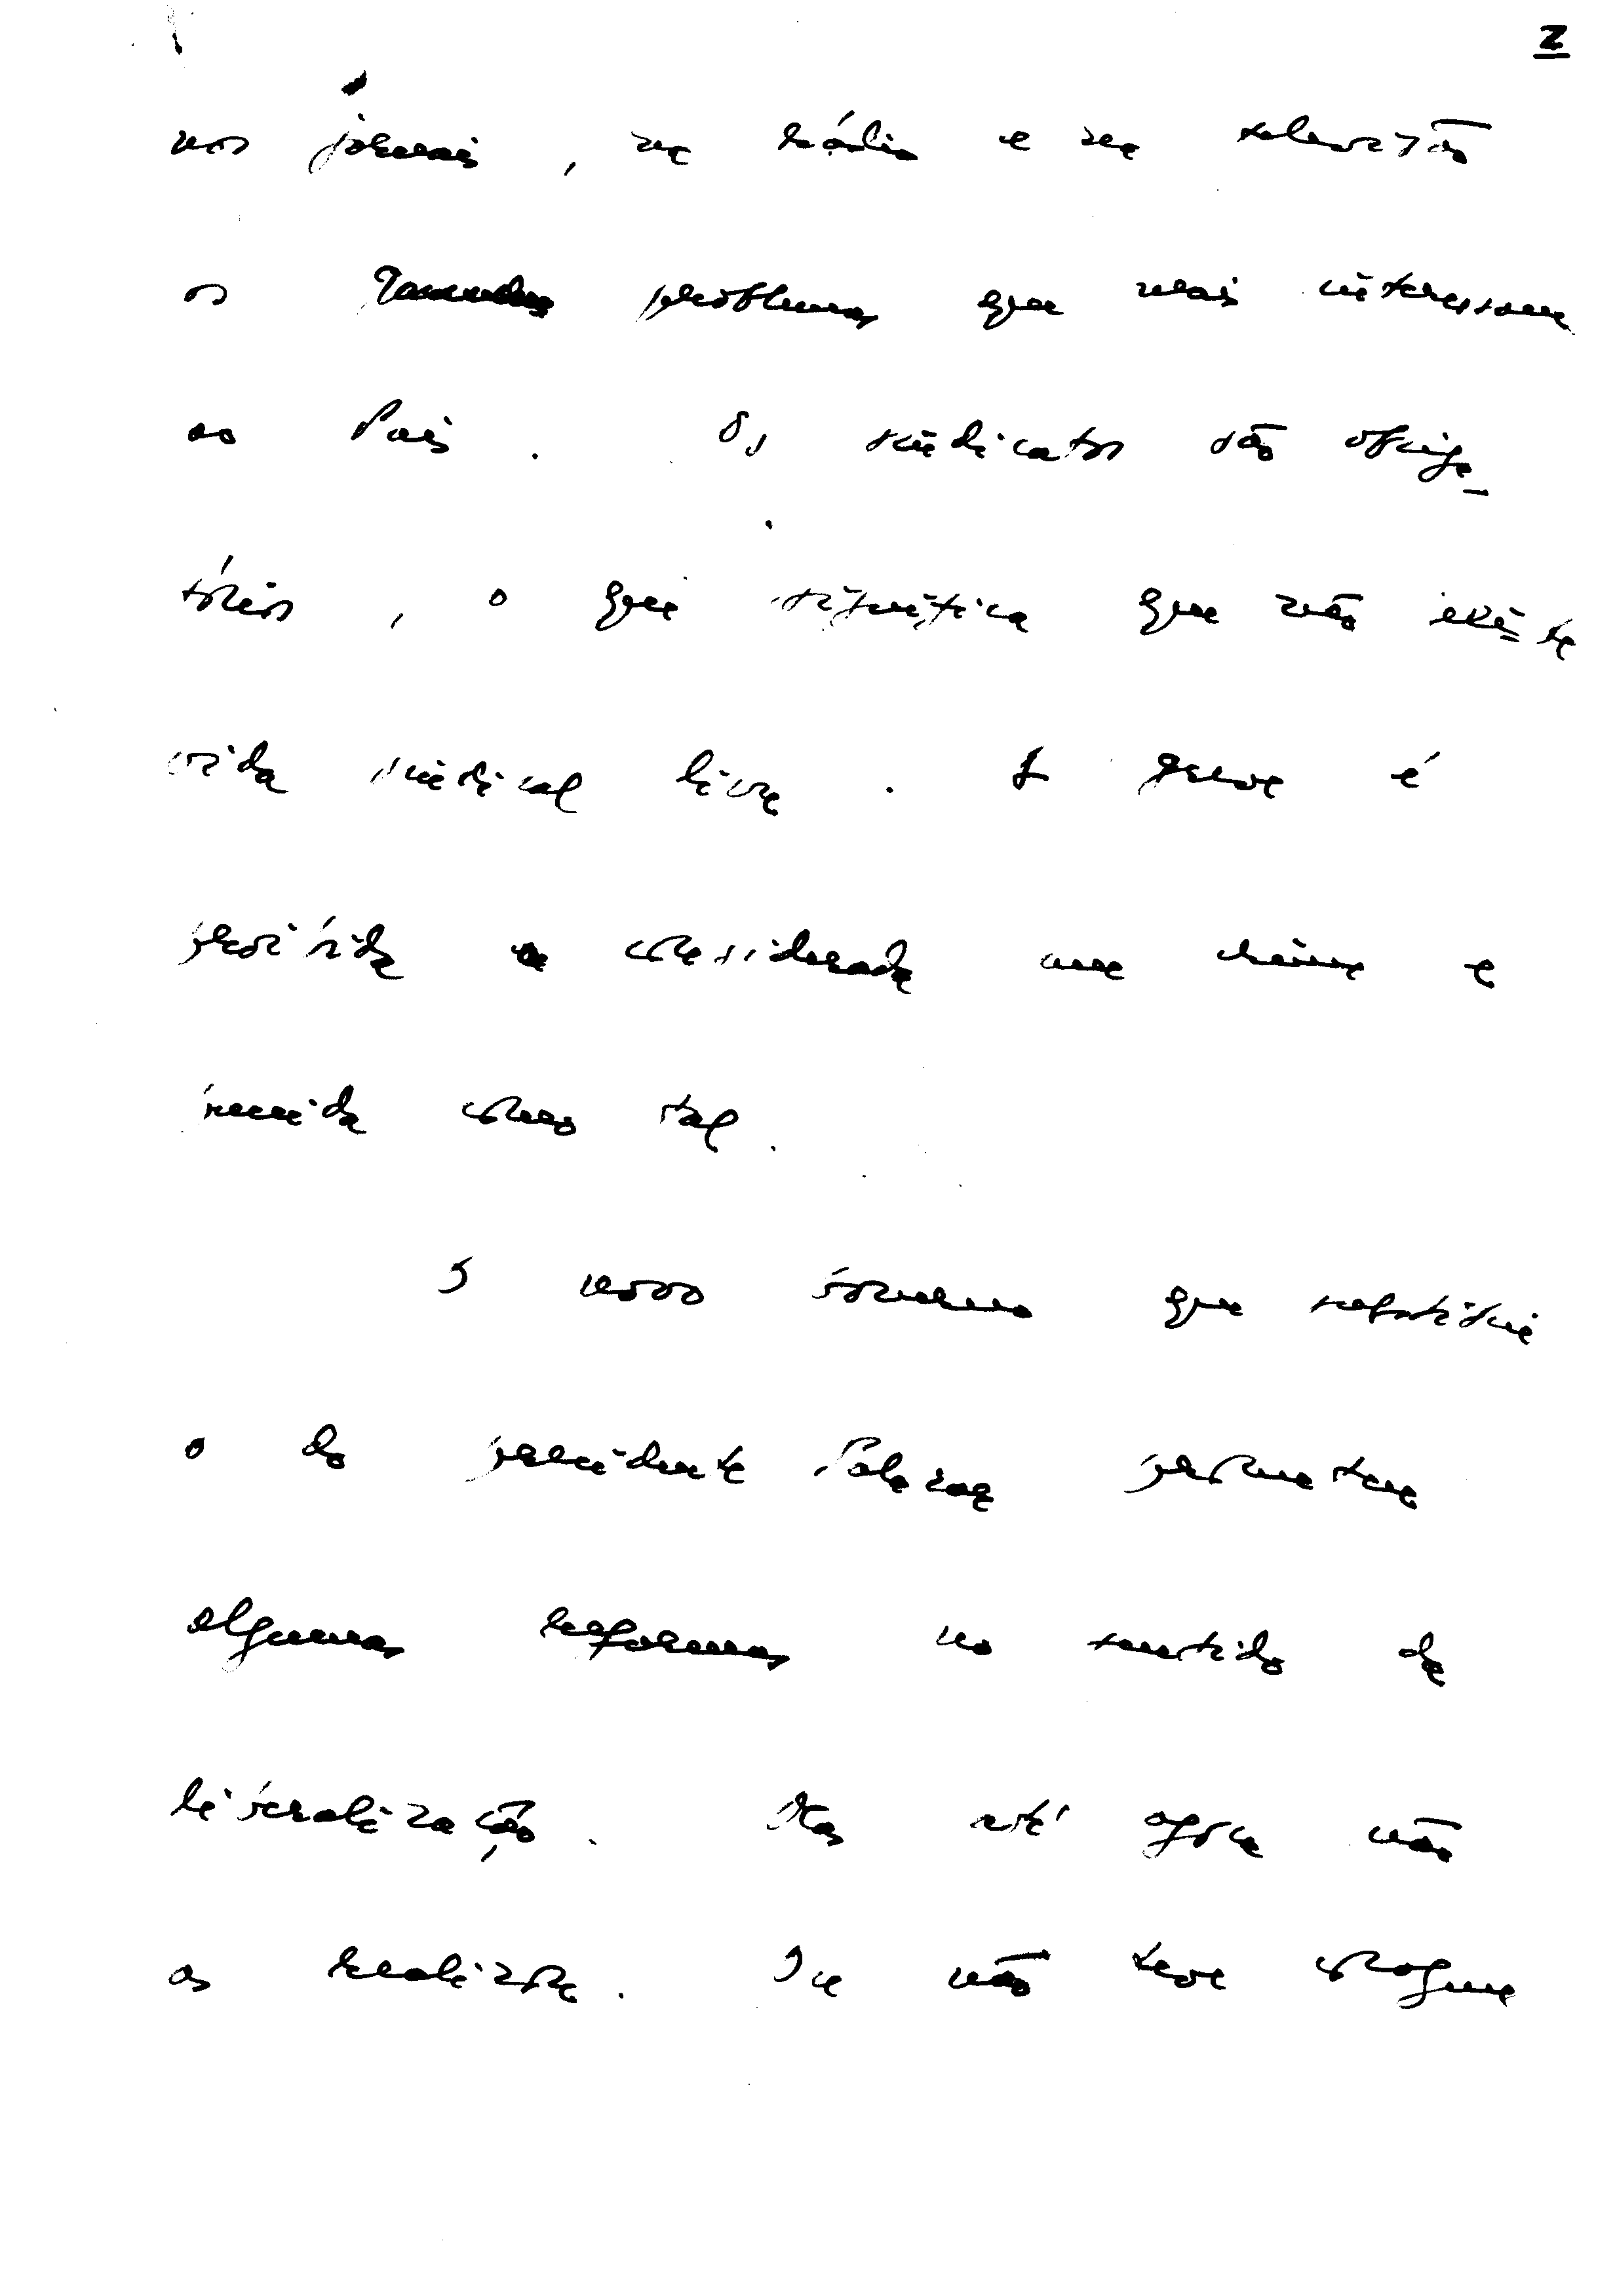 2
nos jornais, na rádio e na televisão
os grandes problemas que mais interessam
ao País. Os sindicatos são obriga-
tórios, o que significa que não existe
vida sindical livre. A greve é
proibida e considerada um crime e
punida como tal.
O novo governo que substitui
o do presidente Salazar prometeu
algumas reformas no sentido da
liberalização. Mas até agora não
as realizou. Ou não teve coragem